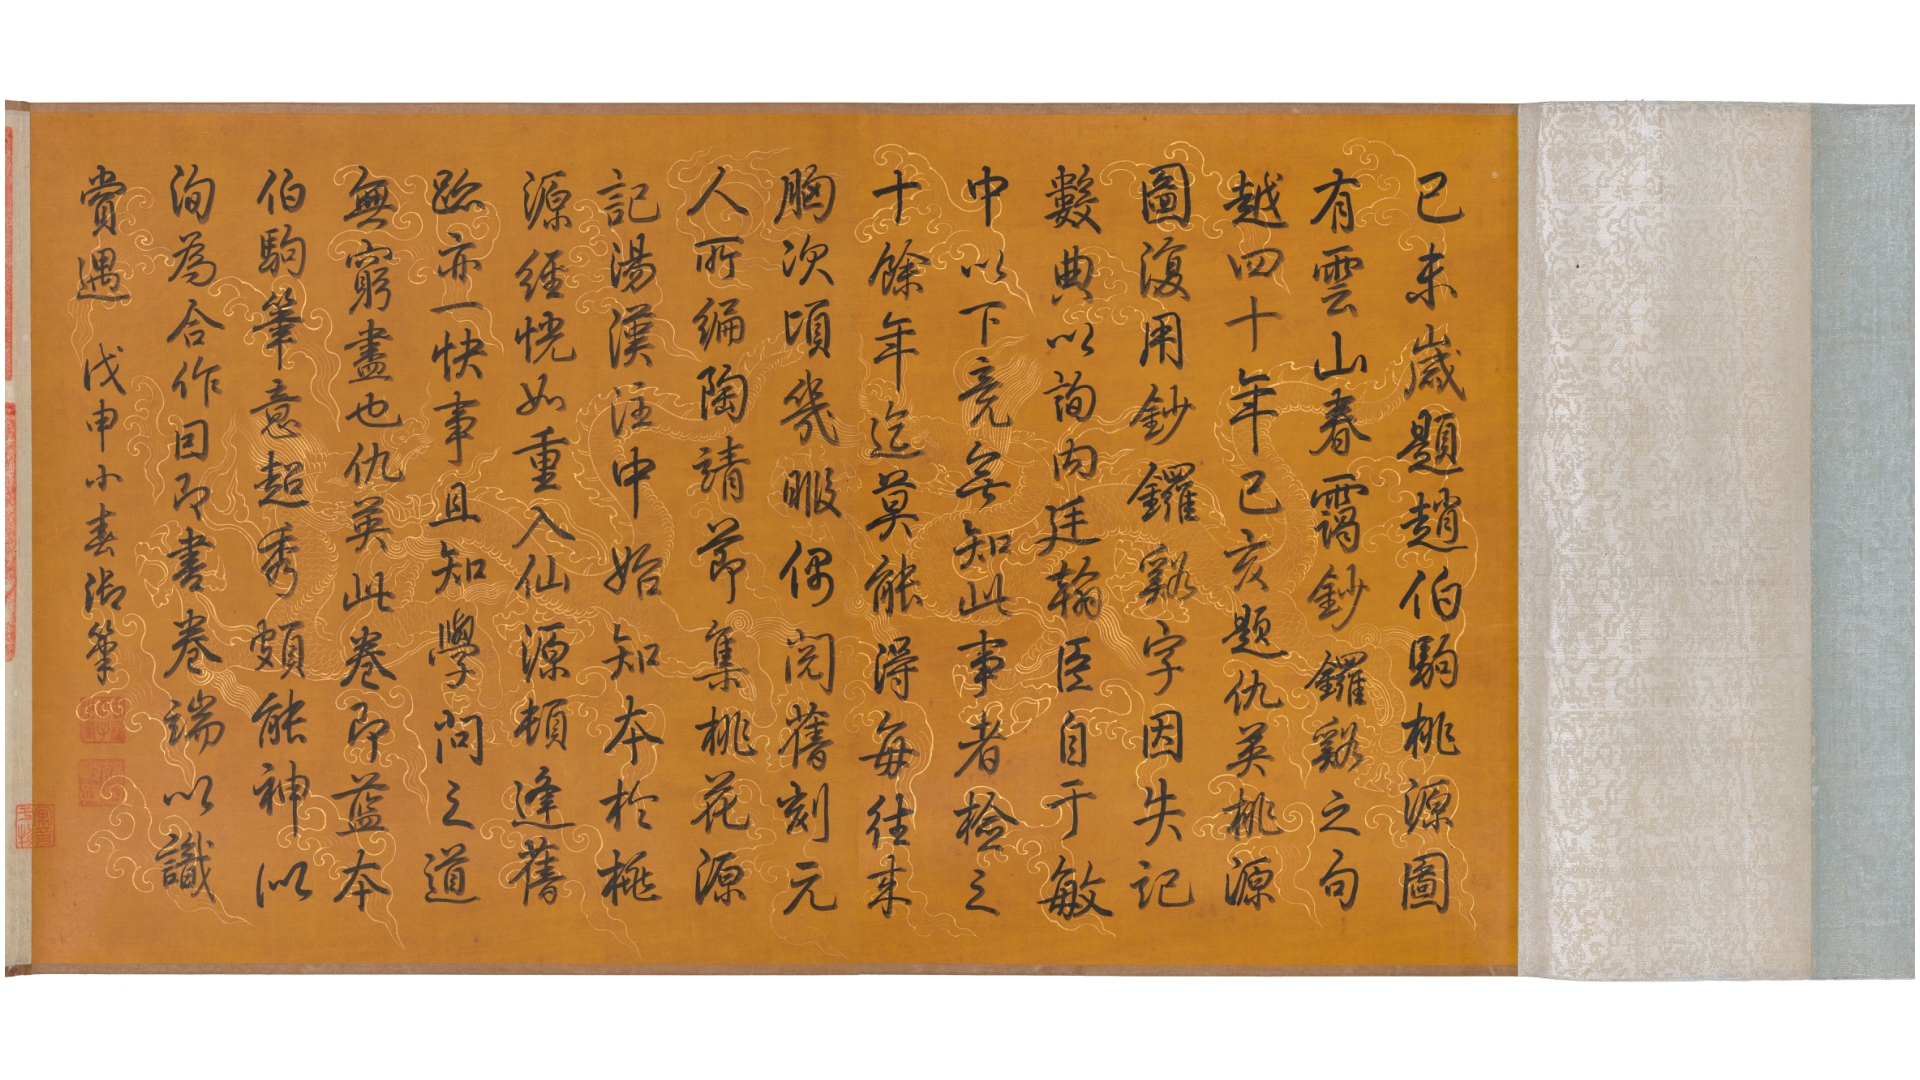 己未歲題趙伯駒桃源圖
有雲山春靄鈔鑼谿之句
越四十年己亥題仇英桃源
圖復用鈔鑼谿字因失記
數典以詢內廷翰臣自于敏
中以下竟無知此事者檢之
十餘年迄莫能得每往來
胸次頃幾暇偶閱舊刻元
人所編陶靖節集桃花源
記湯漢注中始知本於桃
源經恍如重入仙源頓逢舊
跡亦一快事且知學問之道
無窮盡也仇英此卷即藍本
伯駒筆意超秀頗能神似
洵為合作因即書卷端以識
賞遇 戊申小春御筆